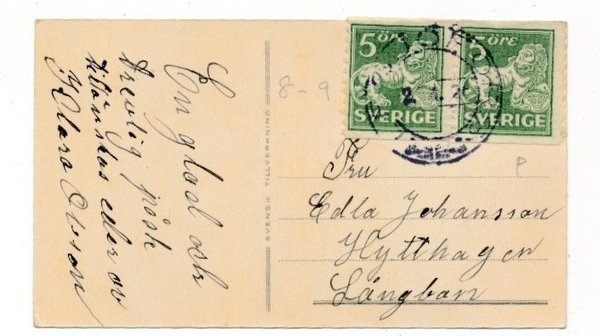 En glad och
trevlig påsk
tillönskas eder av
Klara Olsson
8-9
5 ÖRE
SVERIGE
5 ÖRE
SVERIGE
SVENSK TILLVERKNING
P
Fru
Edla Johansson
Hytthagen
Långban